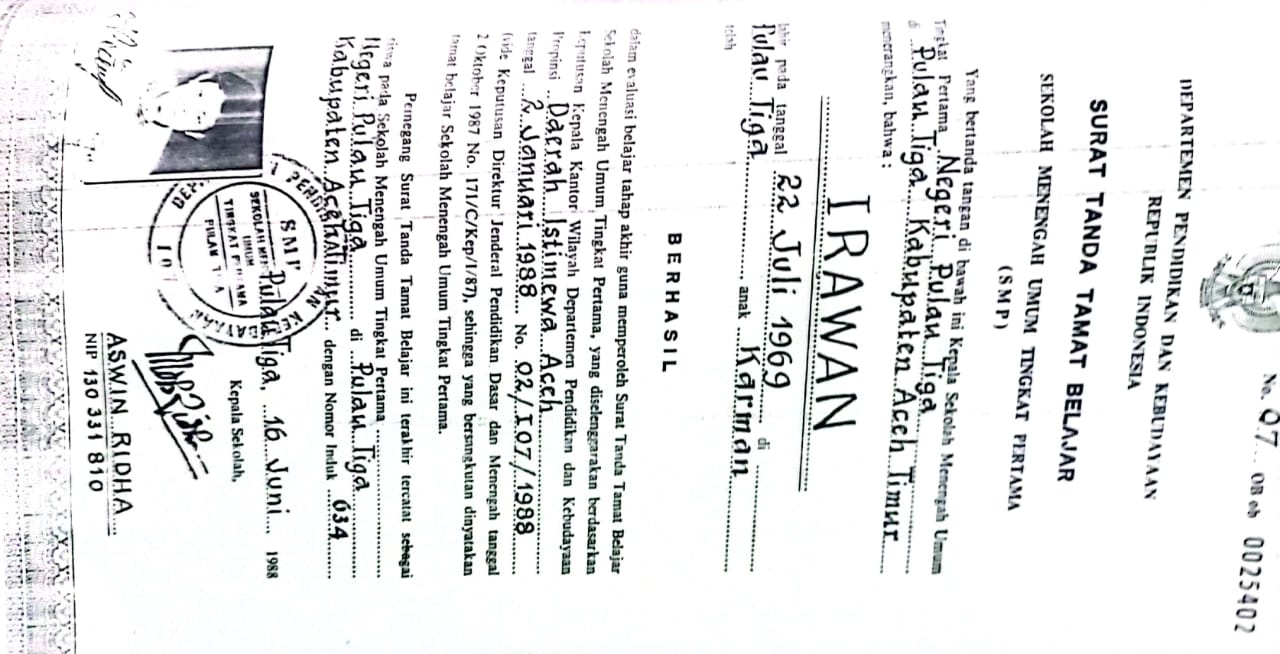 No. 07 OB ob 0025402
DEPARTEMEN PENDIDIKAN DAN KEBUDAYAAN
REPUBLIK INDONESIA
SURAT TANDA TAMAT BELAJAR
SEKOLAH MENENGAH UMUM TINGKAT PERTAMA
(SMP)
Yang bertanda tangan di bawah ini Kepala Sekolah Menengah Umum
Tingkat Pertama Negeri Pulau Tiga
di Pulau Tiga Kabupaten Aceh Timur
menerangkan, bahwa :
IRAWAN
lahir pada tanggal 22 Juli 1969 di
Pulau Tiga anak Karman
telah
BERHASIL
dalam evaluasi belajar tahap akhir guna memperoleh Surat Tanda Tamat Belajar
Sekolah Menengah Umum Tingkat Pertama, yang diselenggarakan berdasarkan
Keputusan Kepala Kantor Wilayah Departemen Pendidikan dan Kebudayaan
Propinsi Daerah Istimewa Aceh
tanggal 2 Januari 1988 No. 02/I07/1988
(vide Keputusan Direktur Jenderal Pendidikan Dasar dan Menengah tanggal
2 Oktober 1987 No. 171/C/Kep/I/87), sehingga yang bersangkutan dinyatakan
tamat belajar Sekolah Menengah Umum Tingkat Pertama.
Pemegang Surat Tanda Tamat Belajar ini terakhir tercatat sebagai
siswa pada Sekolah Menengah Umum Tingkat Pertama
Negeri Pulau Tiga di Pulau Tiga
Kabupaten Aceh Timur dengan Nomor Induk 034
SMP
SEKOLAH
UMUM
TINGKAT
PULAU
Pulau Tiga, 16 Juni 1988
Kepala Sekolah,
ASWIN RIDHA
NIP 130 331 810